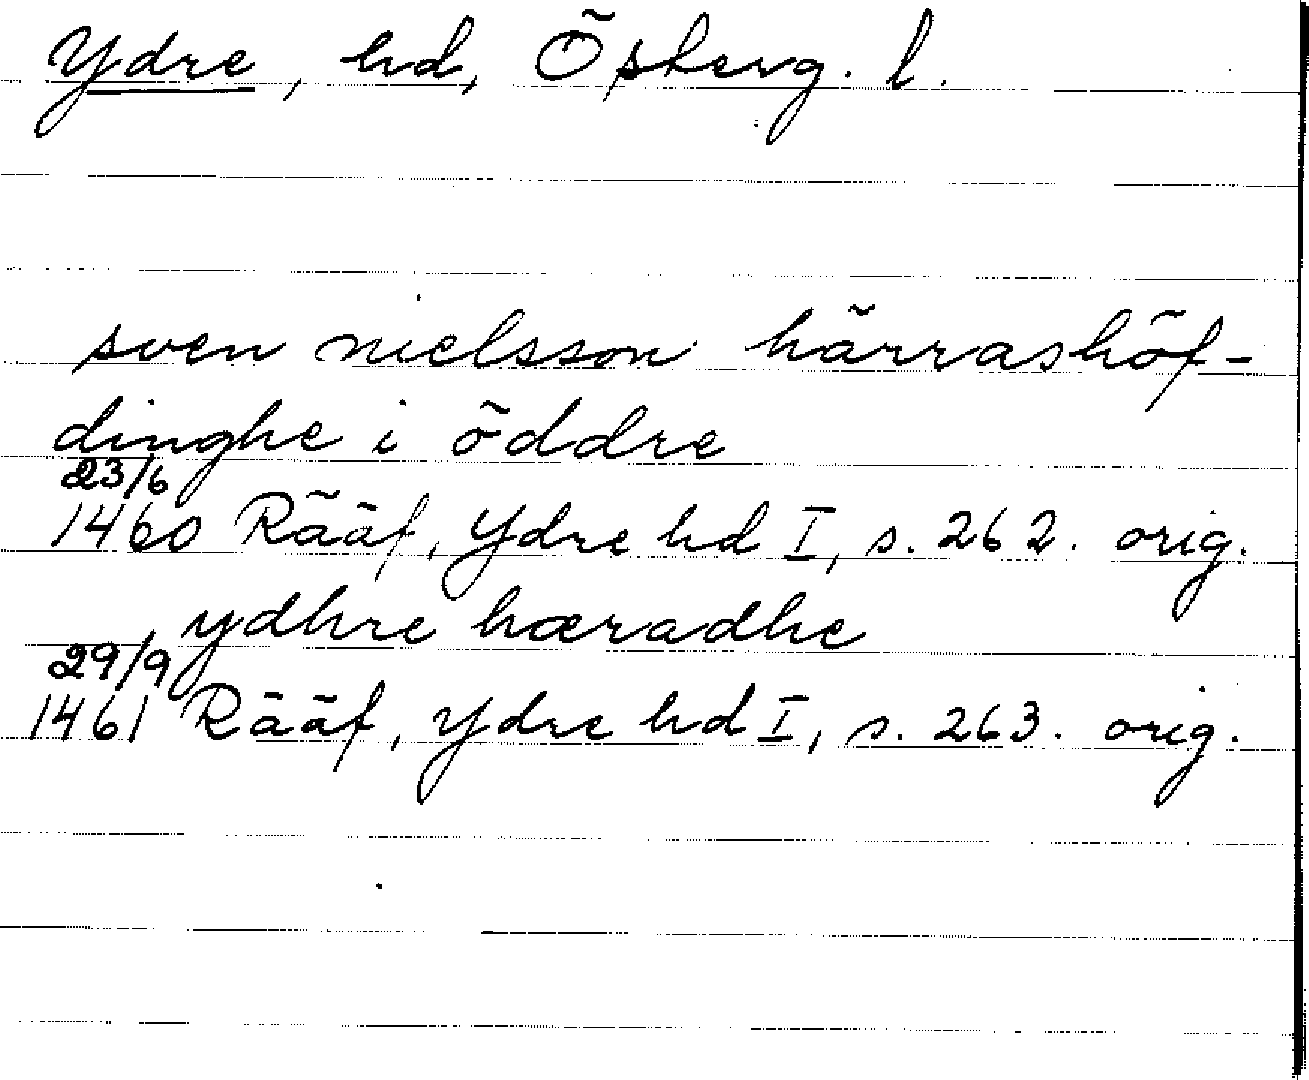 Ydre, hd, Österg. l.
sven nielsson härrashöf-
dinghe i öddre
23/6
1460 Rääf, Ydre hd I, s. 262. orig.
ydhre hæradhe
29/9
1461 Rääf, Ydre hd I, s. 263. orig.